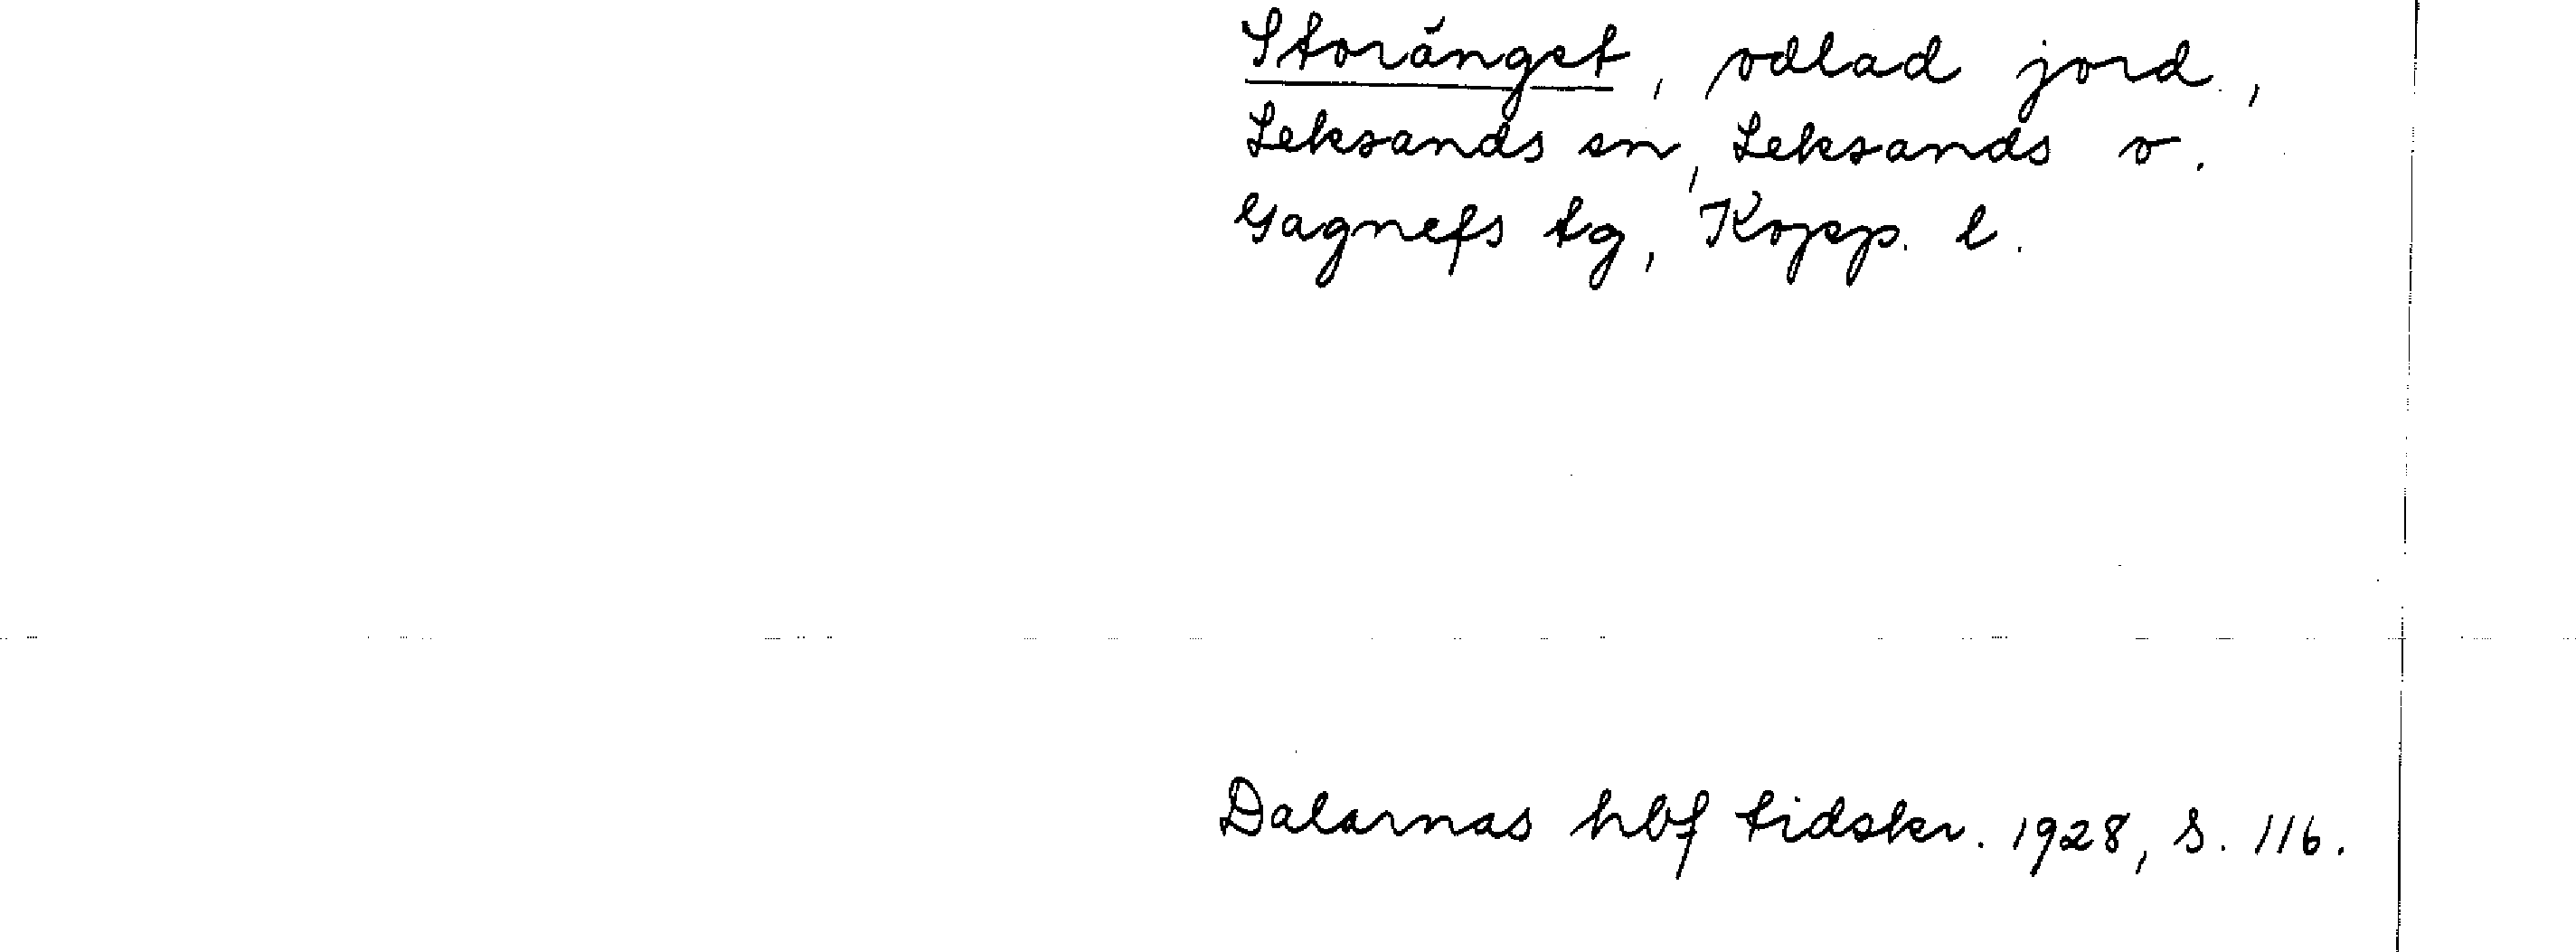 Storänget, odlad jord,
Leksands sn, Leksands o.
Gagnefs tg, Kopp. l.
Dalarnas hbf tidskr. 1928, s. 116.